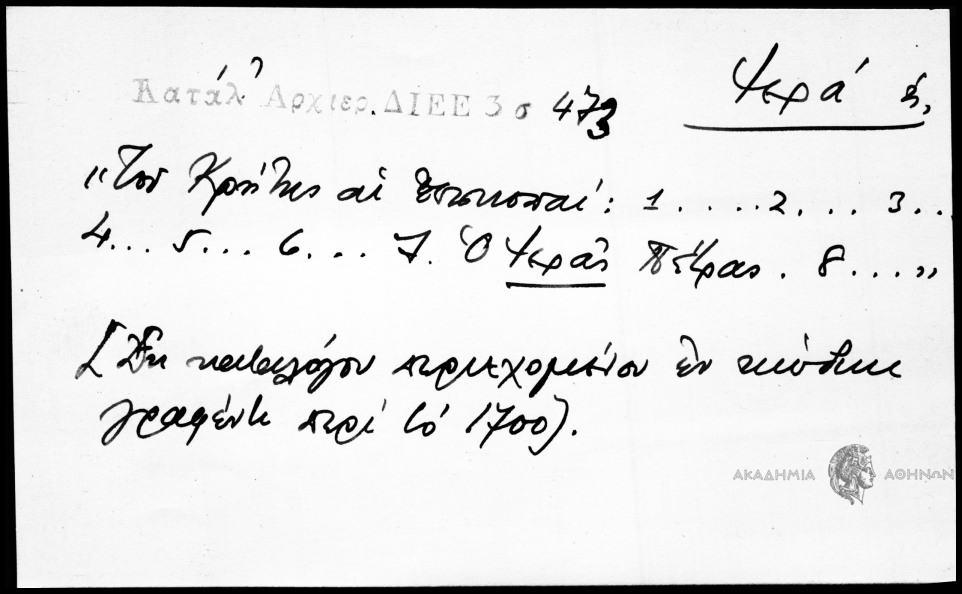 Κατάλ. Ἀρχιερ. ΔΙΕΕ 3 σ 473
Ψερά ἡ,
"Τοῦ Κρήτης αἱ Ἐπισκοπαί: 1.....2....3...
4... 5... 6.... 7. Ὁ Ψερᾶς Πέτρας. 8...."
[Ἐκ καταλόγου περιεχομένου ἐν κώδικι
γραφέντι περί τό 1700).
ΑΚΑΔΗΜΙΑ ΑΘΗΝΩΝ